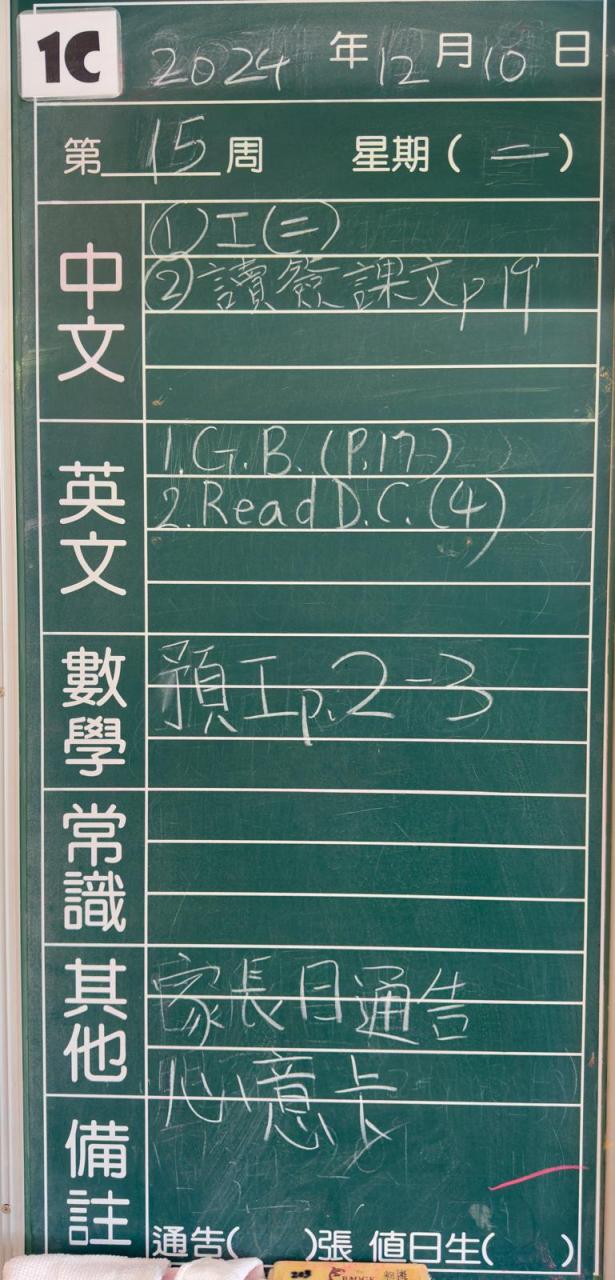 1C 2024 年 12 月 10 日
第 15 周 星期 ( 二 )
中文
① 工(二)
② 讀簽課文p19
英文
1. G.B. (P.17)
2. Read D.C. (4)
數學
預工p.2-3
常識
其他
家長日通告
心意卡
備註
通告( )張 值日生( )